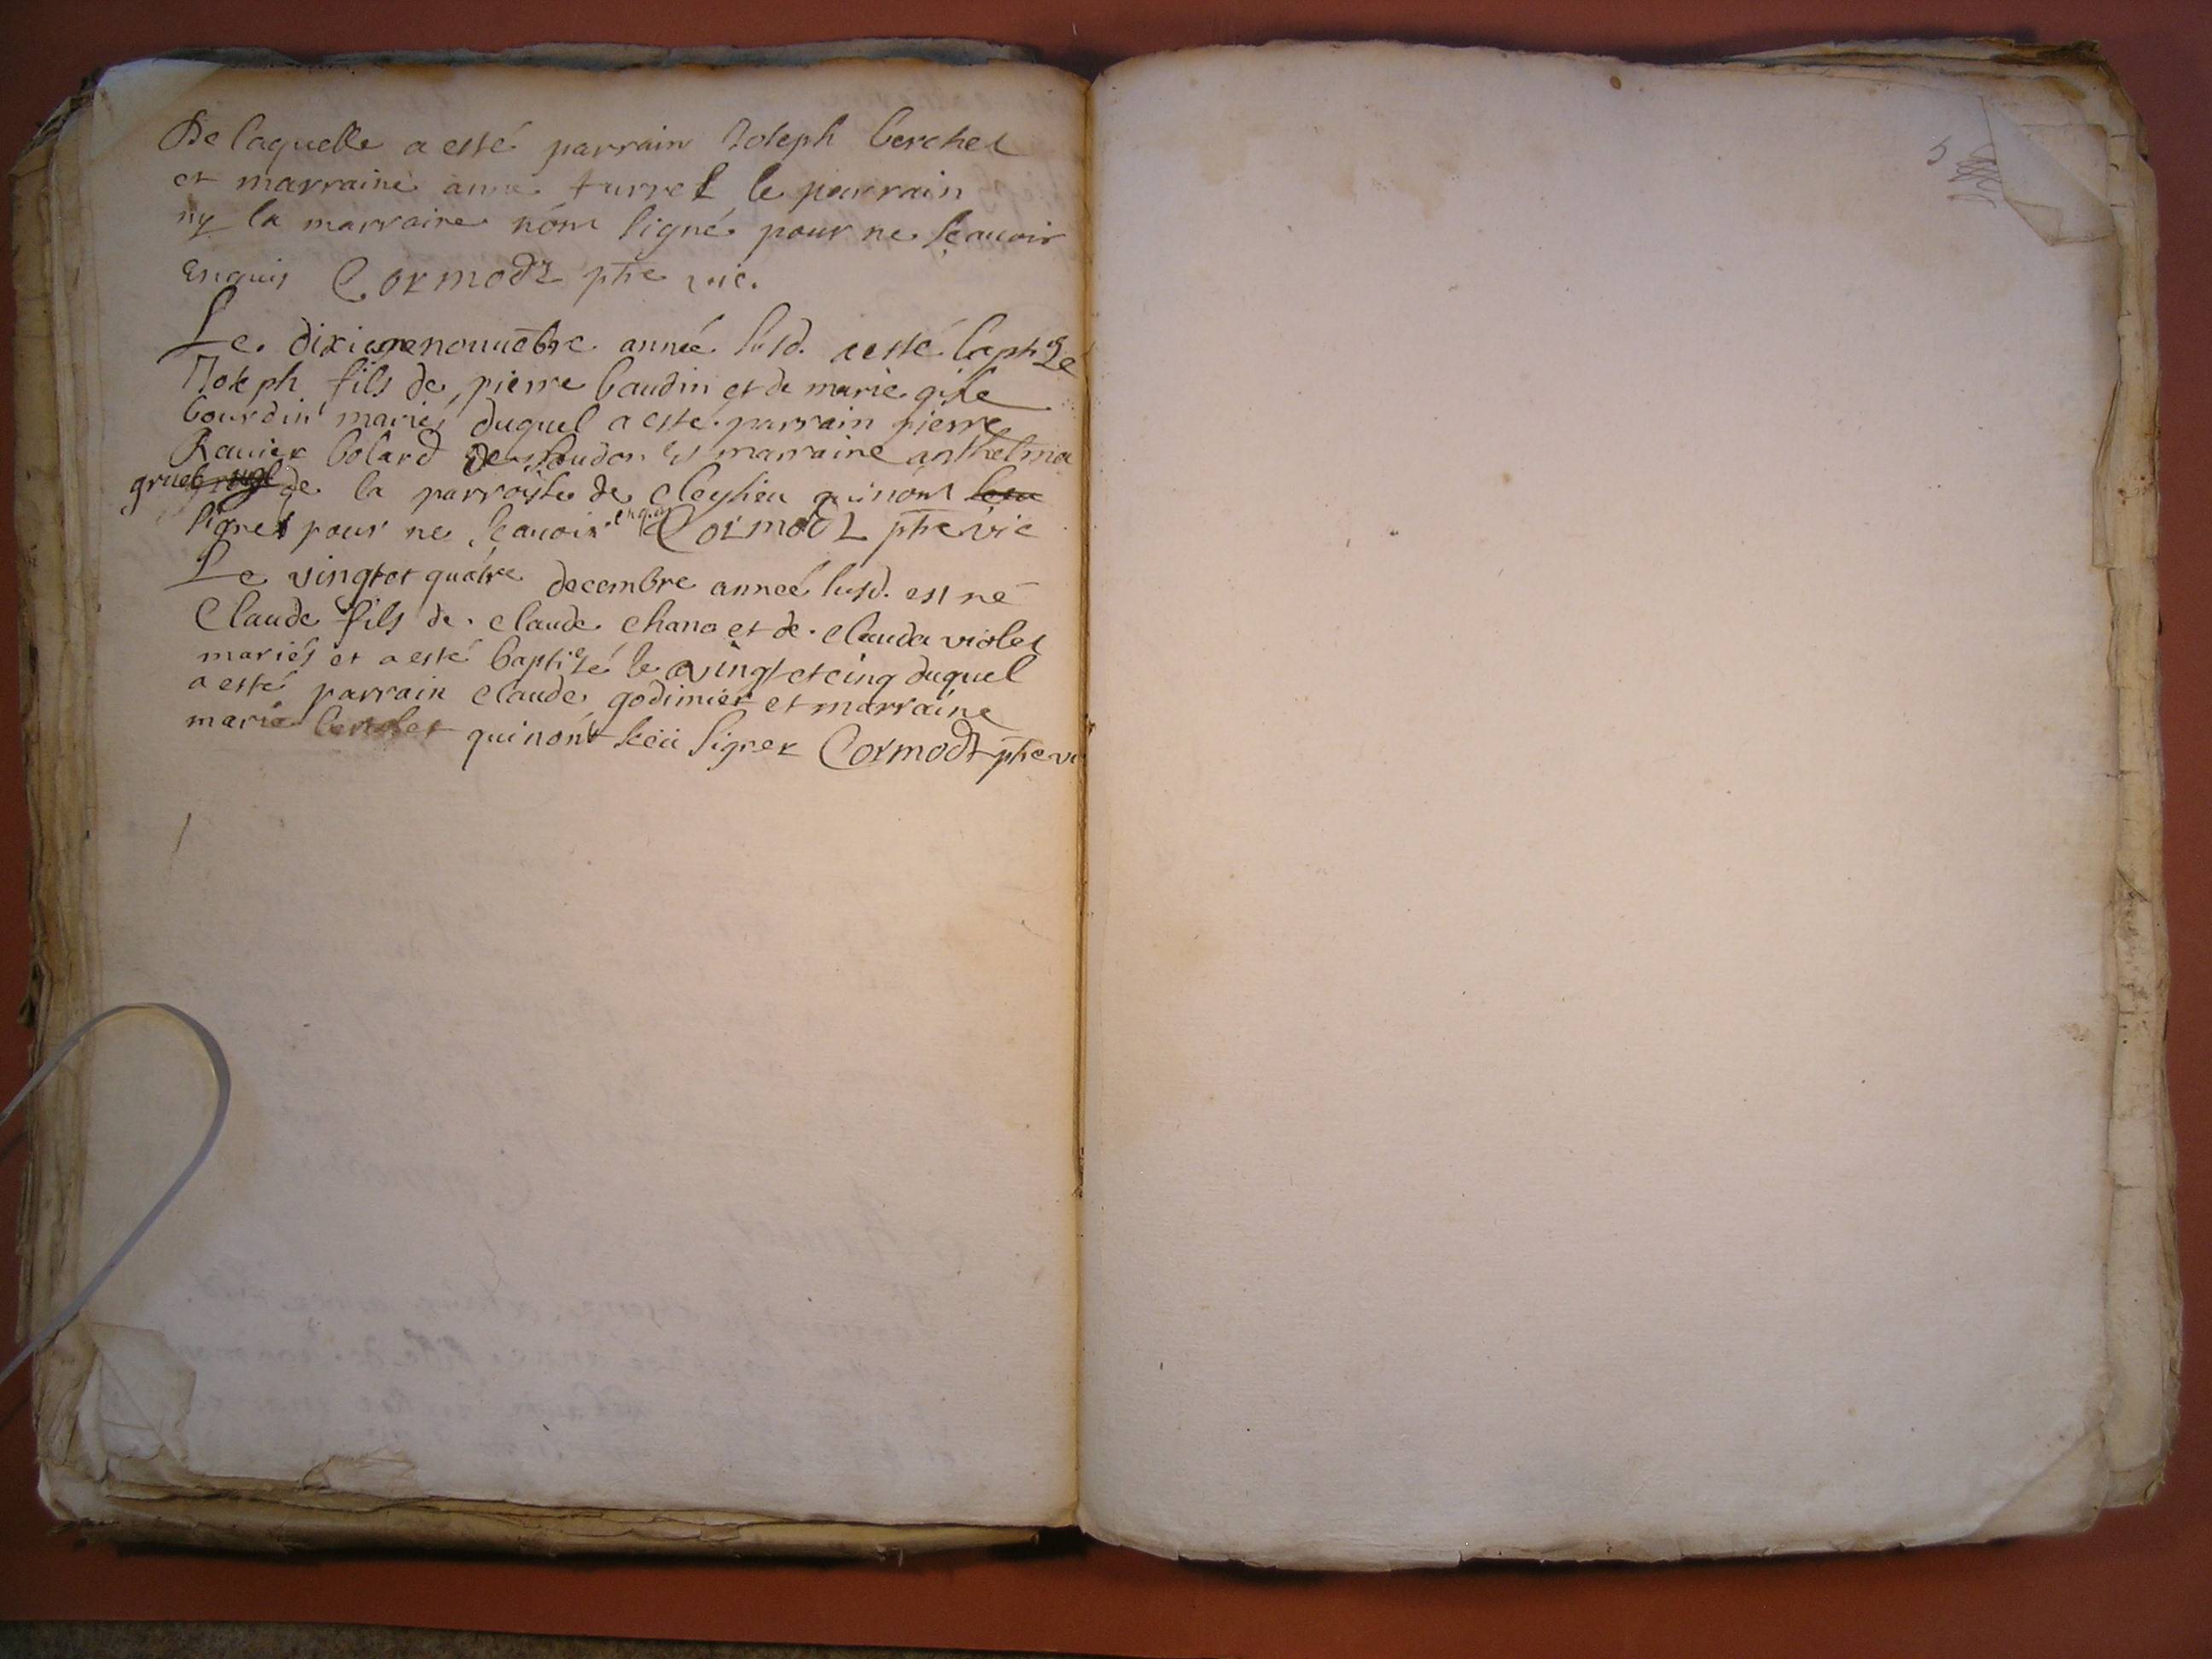 De laquelle a esté parrain Joseph berchet
et marraine anne turrel le parrain
ny la marraine nónt signé pour ne sçauoir
enquis Cormodz ptre vic.
Le dixieme nouuēbre année susd. a esté baptizé
Joseph fils de pierre baudin et de marie gise
bourdin mariés duquel a esté parrain pierre
Rauier bolard de et marraine anthelma
grueb de la parroisse de cleysieu qui nónt sceu
signer pour ne sçauoir enquis Cormodz ptre vic
Le vingt et quatre decembre année susd. est né
Claude fils de claude chana et de clauda violet
mariés et a esté baptizé le vingt et cinq duquel
a esté parrain claude godimier et marraine
marie berchet qui nónt sceü signer Cormodz ptre vi
5